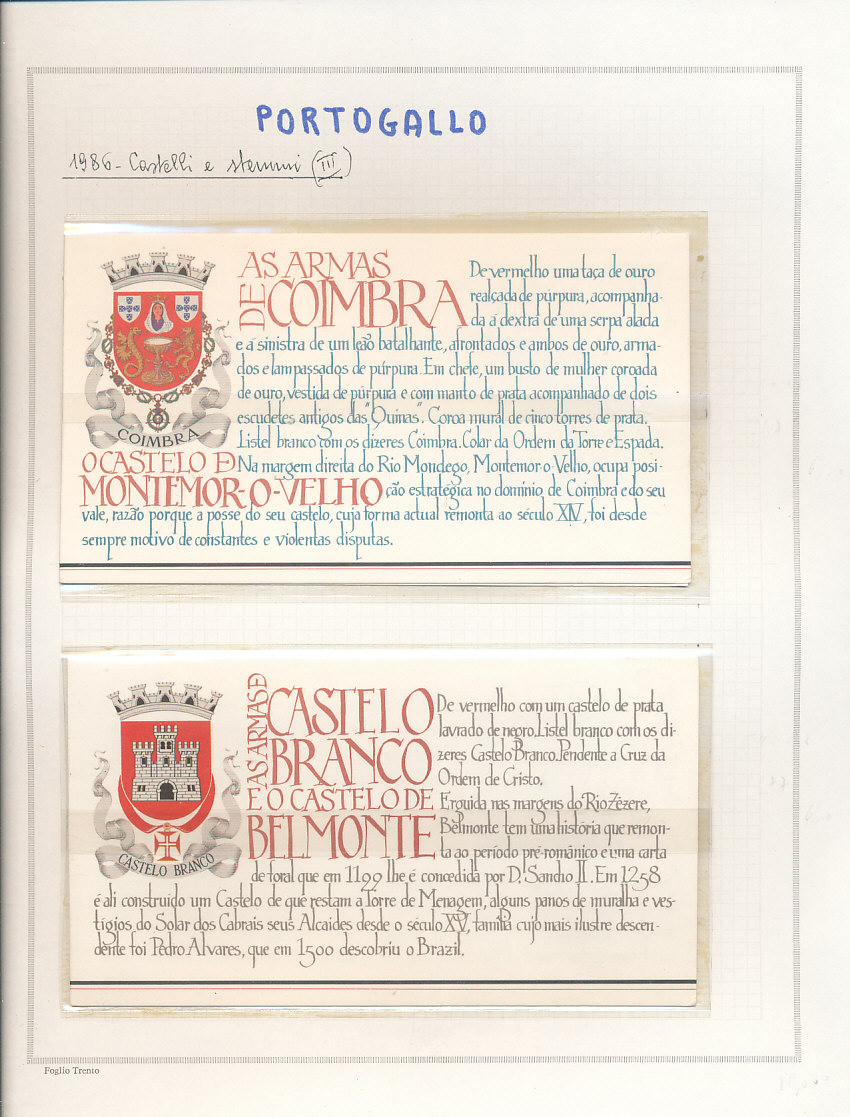 PORTOGALLO
1986 - Castelli e stemmi (III)
AS ARMAS
DE COIMBRA
De vermelho uma taça de ouro
realçada de púrpura, acompanha-
da á dextra de uma serpa alada
e á sinistra de um leão batalhante, afrontados e ambos de ouro, arma-
dos e lampassados de púrpura. Em chefe, um busto de mulher coroada
de ouro, vestida de púrpura e com manto de prata acompanhado de dois
escudetes antigos das "Quinas". Coroa mural de cinco torres de prata.
Listel branco com os dizeres Coimbra. Colar da Ordem da Torre e Espada.
COIMBRA
O CASTELO D
MONTEMOR-O-VELHO
Na margem direita do Rio Mondego, Montemor-o-Velho, ocupa posi-
ção estratégica no domínio de Coimbra e do seu
vale, razão porque a posse do seu castelo, cuja forma actual remonta ao século XIV, foi desde
sempre motivo de constantes e violentas disputas.
AS ARMAS D
CASTELO
BRANCO
E O CASTELO DE
BELMONTE
CASTELO BRANCO
De vermelho com um castelo de prata
lavrado de negro. Listel branco com os di-
zeres Castelo Branco. Pendente a Cruz da
Ordem de Cristo.
Erguida nas margens do Rio Zêzere,
Belmonte tem uma história que remon-
ta ao período pré-românico e uma carta
de foral que em 1199 lhe é concedida por D. Sancho II. Em 1258
é ali construido um Castelo de que restam a Torre de Menagem, alguns panos de muralha e ves-
tígios do Solar dos Cabrais seus Alcaides desde o século XV, família cujo mais ilustre descen-
dente foi Pedro Alvares, que em 1500 descobriu o Brazil.
Foglio Trento